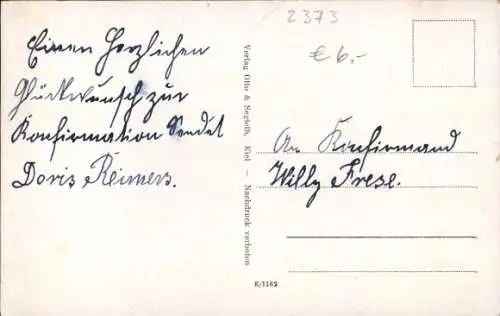 Einen Herzlichen
Glückwunsch zur
Konfirmation Sendet
Doris Reimers.
Verlag Otto & Segleth, Kiel — Nachdruck verboten
K/1162
2373
€ 6,-
An Konfirmand
Willy Frese.